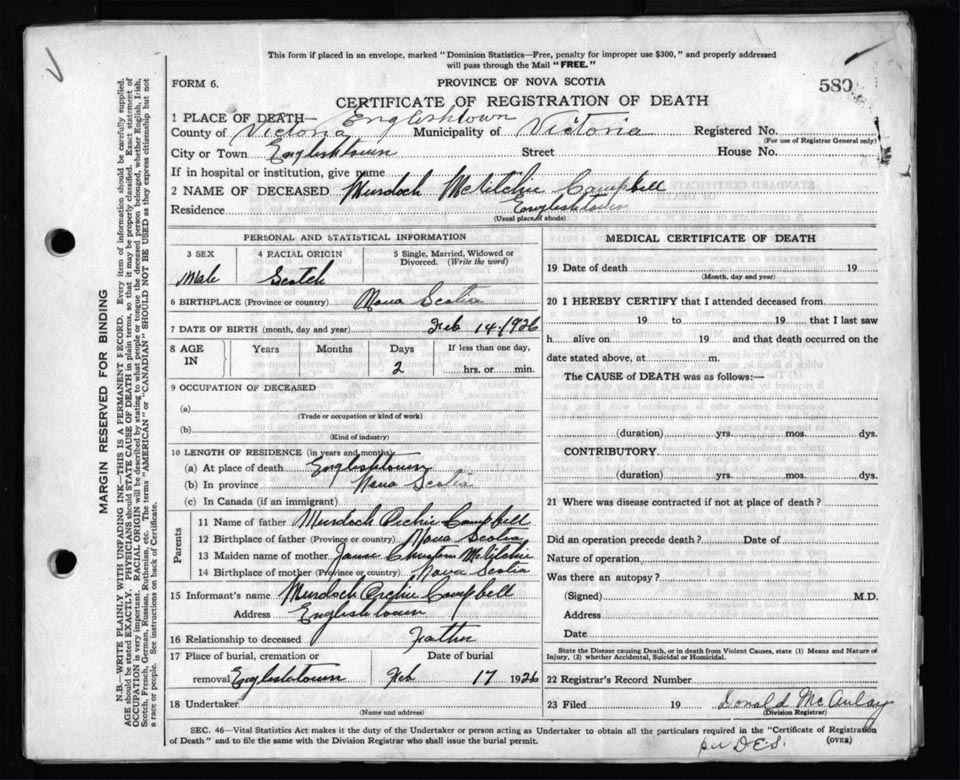 This form if placed in an envelope, marked "Dominion Statistics—Free, penalty for improper use $300," and properly addressed
will pass through the Mail "FREE."
FORM 6.
PROVINCE OF NOVA SCOTIA
580
CERTIFICATE OF REGISTRATION OF DEATH
1 PLACE OF DEATH— Englishtown
County of Victoria Municipality of Victoria Registered No.
(For use of Registrar General only)
City or Town Englishtown Street House No.
If in hospital or institution, give name
2 NAME OF DECEASED Murdoch McRitchie Campbell
Residence Englishtown
(Usual place of abode)
PERSONAL AND STATISTICAL INFORMATION
3 SEX 4 RACIAL ORIGIN 5 Single, Married, Widowed or
Divorced. (Write the word)
Male Scotch
6 BIRTHPLACE (Province or country) Nova Scotia
7 DATE OF BIRTH (month, day and year) Feb 14. 1926
8 AGE IN Years Months Days If less than one day,
2 hrs. or min.
9 OCCUPATION OF DECEASED
(a)
(Trade or occupation or kind of work)
(b)
(Kind of industry)
10 LENGTH OF RESIDENCE (in years and months)
(a) At place of death Englishtown
(b) In province Nova Scotia
(c) In Canada (if an immigrant)
Parents
11 Name of father Murdoch Archie Campbell
12 Birthplace of father (Province or country) Nova Scotia
13 Maiden name of mother McRitchie
14 Birthplace of mother (Province or country) Nova Scotia
15 Informant's name Murdoch Archie Campbell
Address Englishtown
16 Relationship to deceased Father
17 Place of burial, cremation or Date of burial
removal Englishtown Feb 17 1926
18 Undertaker
(Name and address)
MEDICAL CERTIFICATE OF DEATH
19 Date of death 19
(Month, day and year)
20 I HEREBY CERTIFY that I attended deceased from
19 to 19 that I last saw
h alive on 19 and that death occurred on the
date stated above, at m.
The CAUSE of DEATH was as follows:—
(duration) yrs. mos. dys.
CONTRIBUTORY
(duration) yrs. mos. dys.
21 Where was disease contracted if not at place of death?
Did an operation precede death? Date of
Nature of operation
Was there an autopsy?
(Signed) M.D.
Address
Date
State the Disease causing Death, or in death from Violent Causes, state (1) Means and Nature of
Injury, (2) whether Accidental, Suicidal or Homicidal.
22 Registrar's Record Number
23 Filed 19 Donald McAulay
(Division Registrar)
per D.E.S.
SEC. 46—Vital Statistics Act makes it the duty of the Undertaker or person acting as Undertaker to obtain all the particulars required in the "Certificate of Registration
of Death" and to file the same with the Division Registrar who shall issue the burial permit.
(OVER)
MARGIN RESERVED FOR BINDING
N.B.—WRITE PLAINLY WITH UNFADING INK—THIS IS A PERMANENT RECORD. Every item of information should be carefully supplied.
AGE should be stated EXACTLY. PHYSICIANS should STATE CAUSE OF DEATH in plain terms, so that it may be properly classified. Exact statement of
OCCUPATION is very important. RACIAL ORIGIN will be described by stating to what people or tongue the deceased person belonged, whether English, Irish,
Scotch, French, German, Russian, Ruthenian, etc. The terms "AMERICAN" or "CANADIAN" SHOULD NOT BE USED as they express citizenship but not
a race or people. See instructions on back of Certificate.